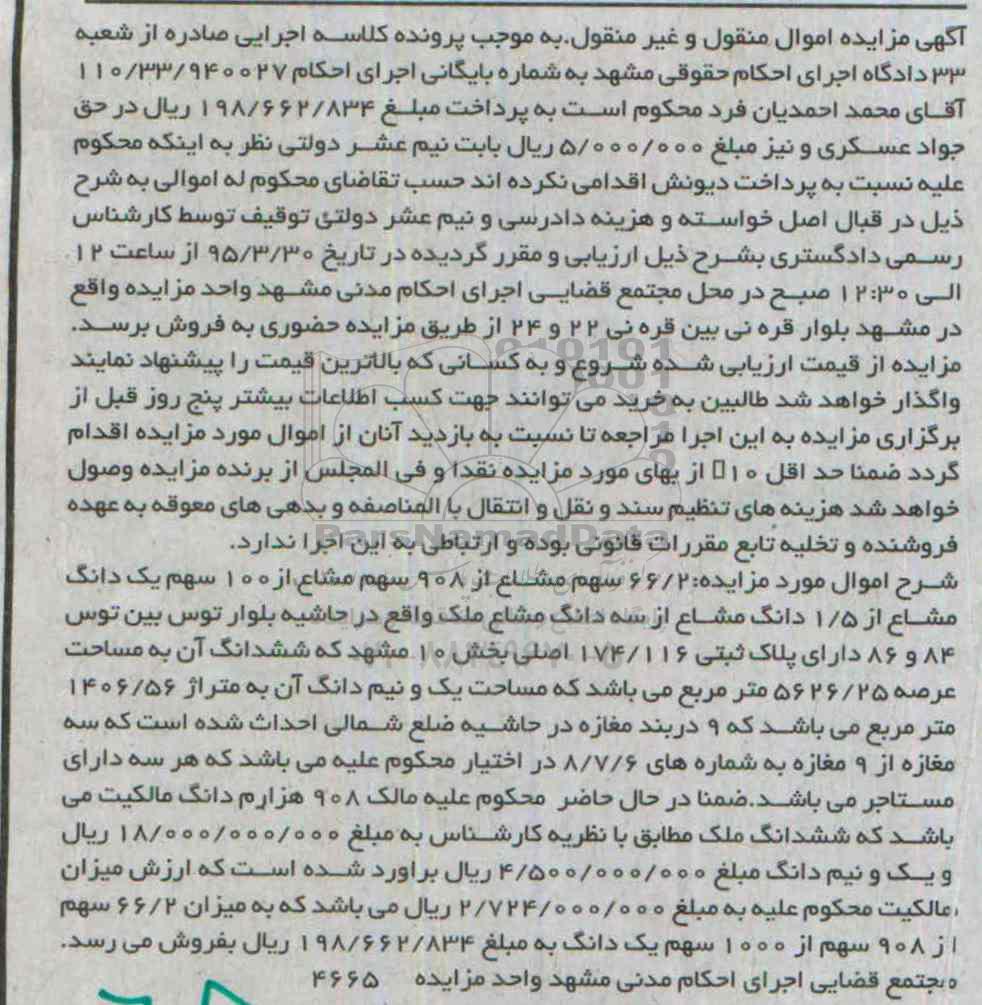 آگهی مزایده اموال منقول و غیر منقول.به موجب پرونده کلاسه اجرایی صادره از شعبه
۳۳ دادگاه اجرای احکام حقوقی مشهد به شماره بایگانی اجرای احکام ۱۱۰/۳۳/۹۴۰۰۲۷
آقای محمد احمدیان فرد محکوم است به پرداخت مبلغ ۱۹۸/۶۶۲/۸۳۴ ریال در حق
جواد عسکری و نیز مبلغ ۵/۰۰۰/۰۰۰ ریال بابت نیم عشر دولتی نظر به اینکه محکوم
علیه نسبت به پرداخت دیونش اقدامی نکرده اند حسب تقاضای محکوم له اموالی به شرح
ذیل در قبال اصل خواسته و هزینه دادرسی و نیم عشر دولتئ توقیف توسط کارشناس
رسمی دادگستری بشرح ذیل ارزیابی و مقرر گردیده در تاریخ ۹۵/۳/۳۰ از ساعت ۱۲
الی ۱۲:۳۰ صبح در محل مجتمع قضایی اجرای احکام مدنی مشهد واحد مزایده واقع
در مشهد بلوار قره نی بین قره نی ۲۲ و ۲۴ از طریق مزایده حضوری به فروش برسد.
مزایده از قیمت ارزیابی شده شروع و به کسانی که بالاترین قیمت را پیشنهاد نمایند
واگذار خواهد شد طالبین به خرید می توانند جهت کسب اطلاعات بیشتر پنج روز قبل از
برگزاری مزایده به این اجرا مراجعه تا نسبت به بازدید آنان از اموال مورد مزایده اقدام
گردد ضمنا حد اقل ۱۰ از بهای مورد مزایده نقدا و فی المجلس از برنده مزایده وصول
خواهد شد هزینه های تنظیم سند و نقل و انتقال با المناصفه و بدهی های معوقه به عهده
فروشنده و تخلیه تابع مقررات قانونی بوده و ارتباطی به این اجرا ندارد.
ParsNamadData
شرح اموال مورد مزایده:۶۶/۲ سهم مشاع از ۹۰۸ سهم مشاع از ۱۰۰ سهم یک دانگ
مشاع از ۱/۵ دانگ مشاع از سه دانگ مشاع ملک واقع در حاشیه بلوار توس بین توس
۸۴ و ۸۶ دارای پلاک ثبتی ۱۷۴/۱۱۶ اصلی بخش ۱۰ مشهد که ششدانگ آن به مساحت
عرصه ۵۶۲۶/۲۵ متر مربع می باشد که مساحت یک و نیم دانگ آن به متراژ ۱۴۰۶/۵۶
متر مربع می باشد که ۹ دربند مغازه در حاشیه ضلع شمالی احداث شده است که سه
مغازه از ۹ مغازه به شماره های ۸/۷/۶ در اختیار محکوم علیه می باشد که هر سه دارای
مستاجر می باشد.ضمنا در حال حاضر محکوم علیه مالک ۹۰۸ هزارم دانگ مالکیت می
باشد که ششدانگ ملک مطابق با نظریه کارشناس به مبلغ ۱۸/۰۰۰/۰۰۰/۰۰۰ ریال
و یک و نیم دانگ مبلغ ۴/۵۰۰/۰۰۰/۰۰۰ ریال براورد شده است که ارزش میزان
مالکیت محکوم علیه به مبلغ ۲/۷۲۴/۰۰۰/۰۰۰ ریال می باشد که به میزان ۶۶/۲ سهم
از ۹۰۸ سهم از ۱۰۰۰ سهم یک دانگ به مبلغ ۱۹۸/۶۶۲/۸۳۴ ریال بفروش می رسد.
مجتمع قضایی اجرای احکام مدنی مشهد واحد مزایده ۴۶۶۵